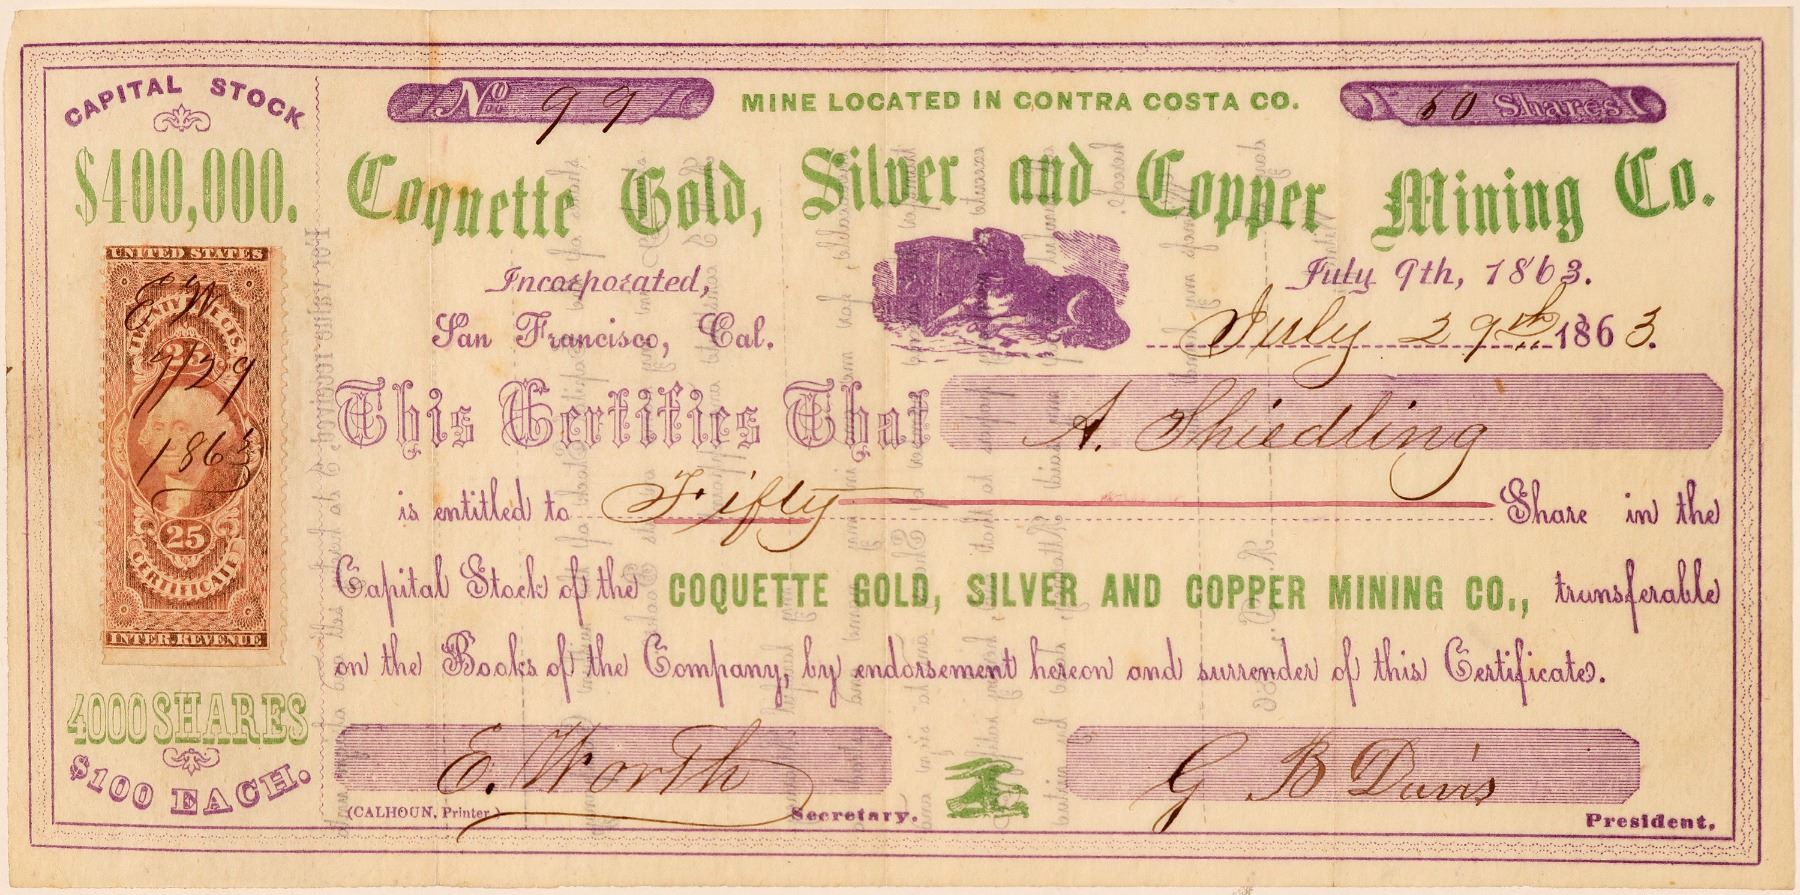 CAPITAL STOCK
$400,000.
UNITED STATES
E W
7/29
1863
25
CERTIFICATE
INTER. REVENUE
4000 SHARES
$100 EACH.
No. 99
MINE LOCATED IN CONTRA COSTA CO.
50 Shares
Coquette Gold, Silver and Copper Mining Co.
Incorporated, July 9th, 1863.
San Francisco, Cal. July 29th 1863.
This Certifies That A. Shiedling
is entitled to Fifty Share in the
Capital Stock of the COQUETTE GOLD, SILVER AND COPPER MINING CO., transferable
on the Books of the Company, by endorsement hereon and surrender of this Certificate.
E. Worth G B Davis
(CALHOUN, Printer.) Secretary. President.